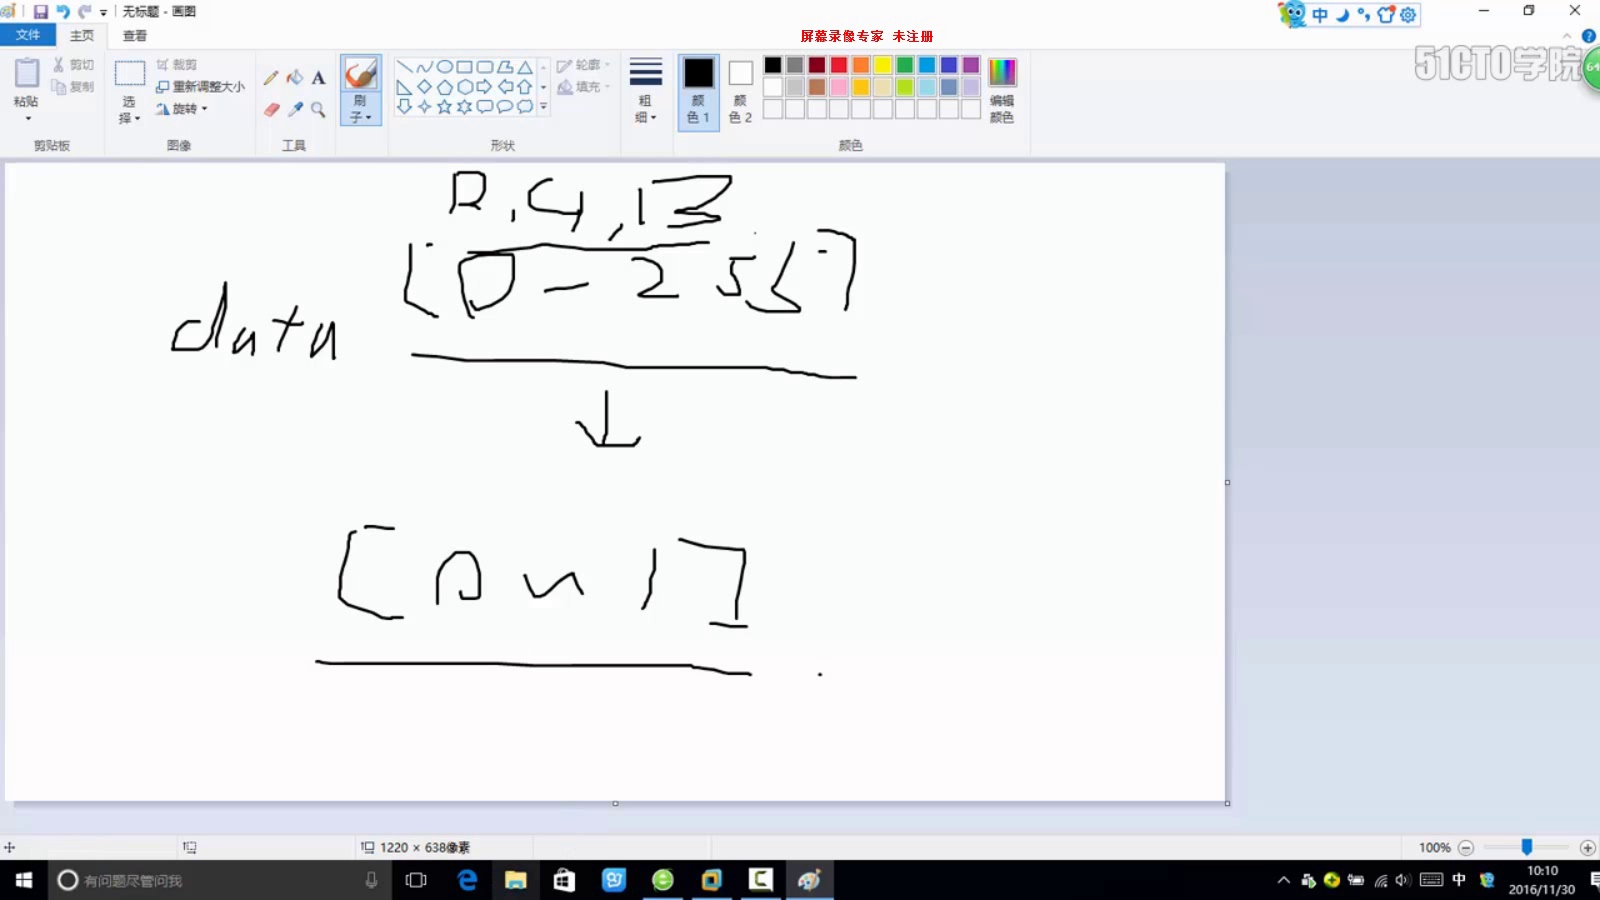 无标题 - 画图
中
文件
主页
查看
屏幕录像专家 未注册
51CTO学院
64
粘贴
剪切
复制
剪贴板
选择
裁剪
重新调整大小
旋转
图像
A
工具
刷子
形状
轮廓
填充
粗细
颜色 1
颜色 2
编辑颜色
颜色
R,G,B
[0-255]
data
[0~1]
1220 × 638像素
100%
有问题尽管问我
中
10:10
2016/11/30